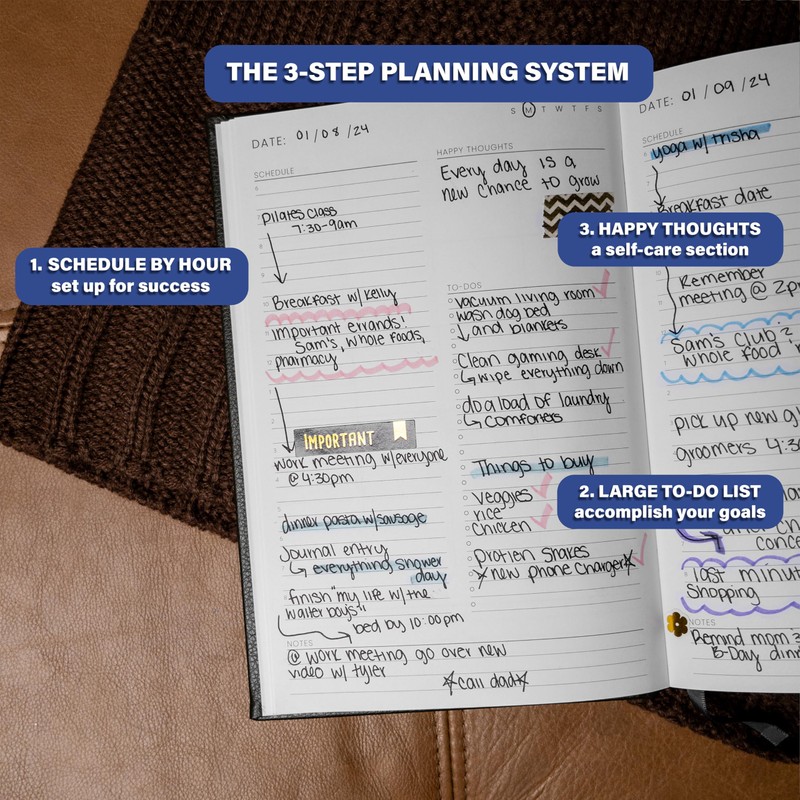 THE 3-STEP PLANNING SYSTEM
S M T W T F S
DATE: 01/08/24
SCHEDULE
6
7
pilates class
7:30-9am
Breakfast w/ Kelly
important errands!
Sam's, whole foods,
pharmacy
IMPORTANT
work meeting w/everyone
@ 4:30pm
dinner pasta w/sausage
Journal entry
everything shower
day
finish "my life w/ the
walter boys"
bed by 10:00pm
NOTES
@ work meeting go over new
video w/ tyler
call dad
HAPPY THOUGHTS
Every day is a
new chance to grow
TO-DOS
vacuum living room
wash dog bed
and blankets
Clean gaming desk
wipe everything down
do a load of laundry
comforters
Things to buy
veggies
rice
chicken
protien shakes
new phone charger
DATE: 01/09/24
SCHEDULE
yoga w/ trisha
Breakfast date
Remember
meeting @ 2p
Sam's Club
whole food
pick up new
groomers 4:3
last minut
Shopping
NOTES
Remind mom
B-Day din
1. SCHEDULE BY HOUR
set up for success
3. HAPPY THOUGHTS
a self-care section
2. LARGE TO-DO LIST
accomplish your goals